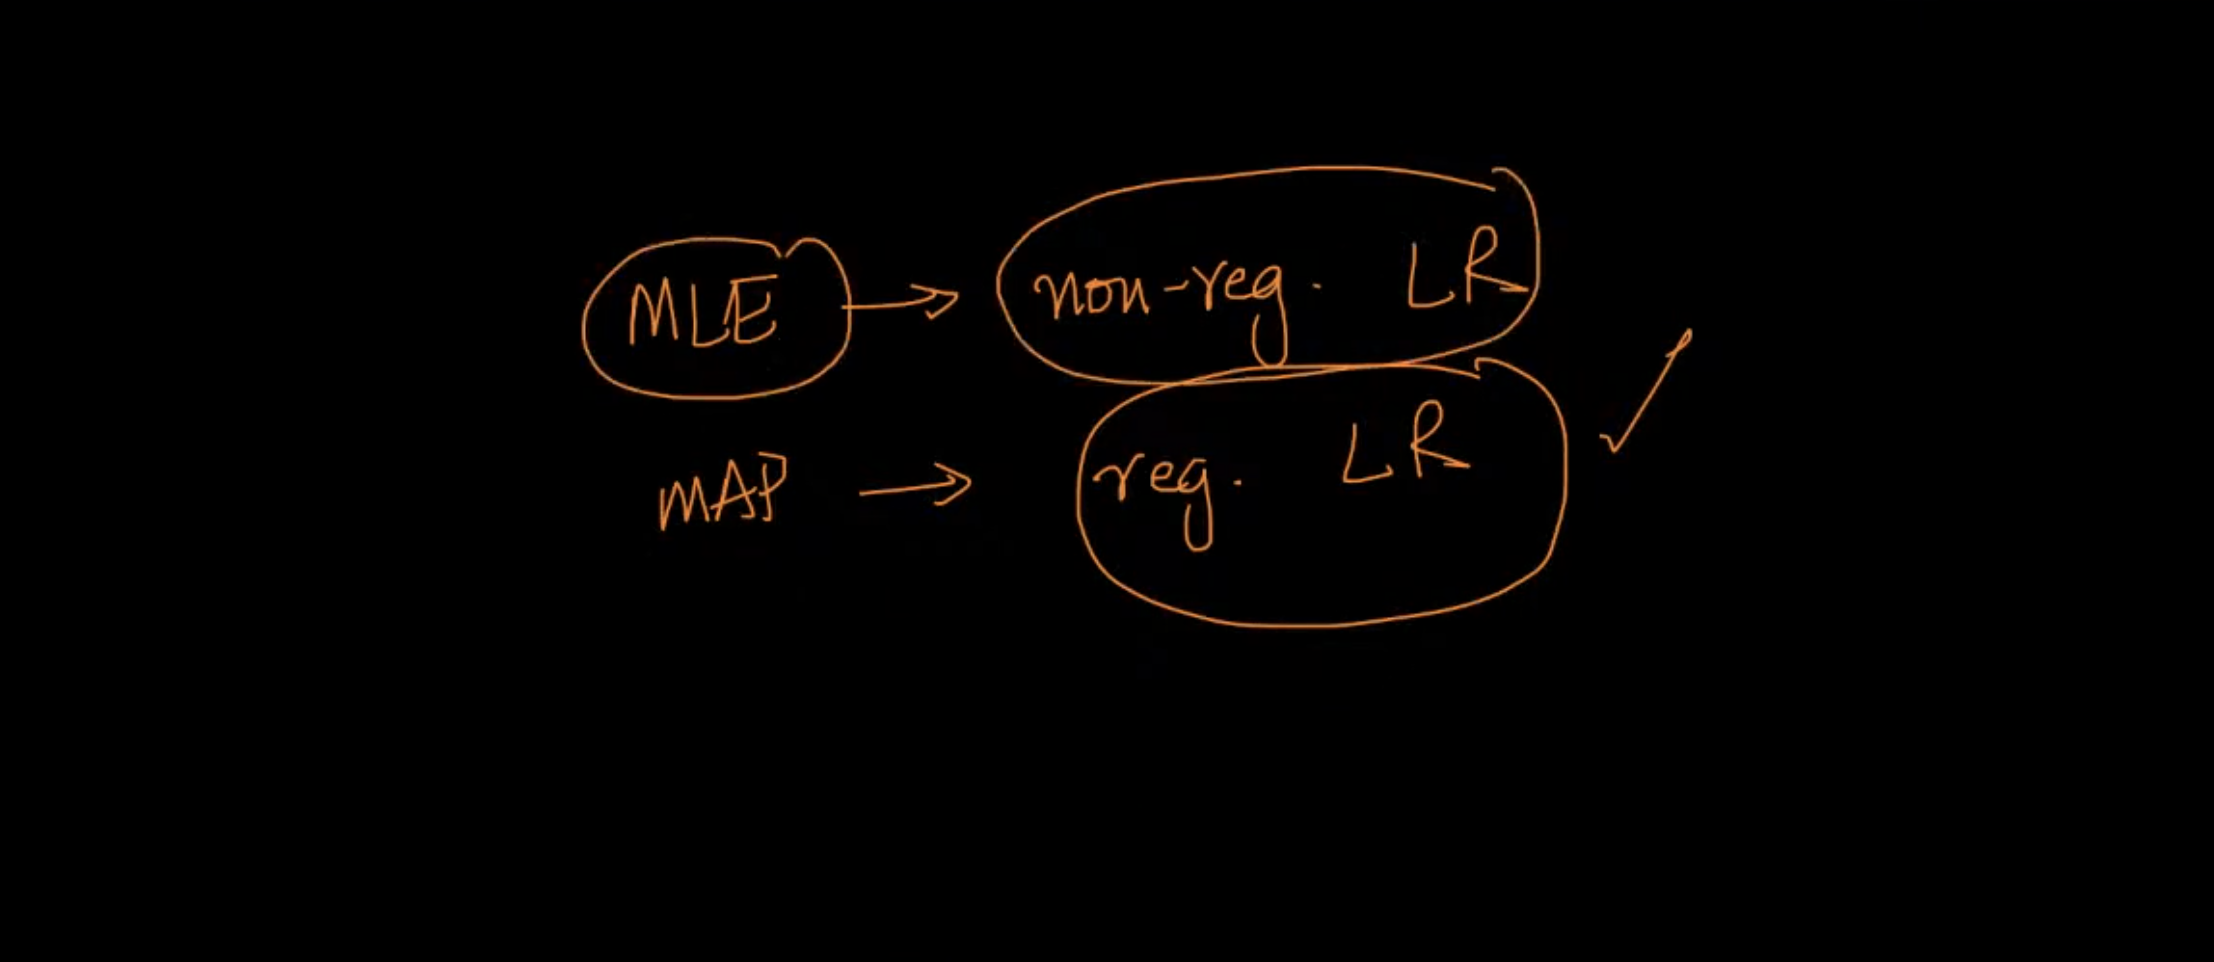 MLE → non-reg. LR
MAP → reg. LR